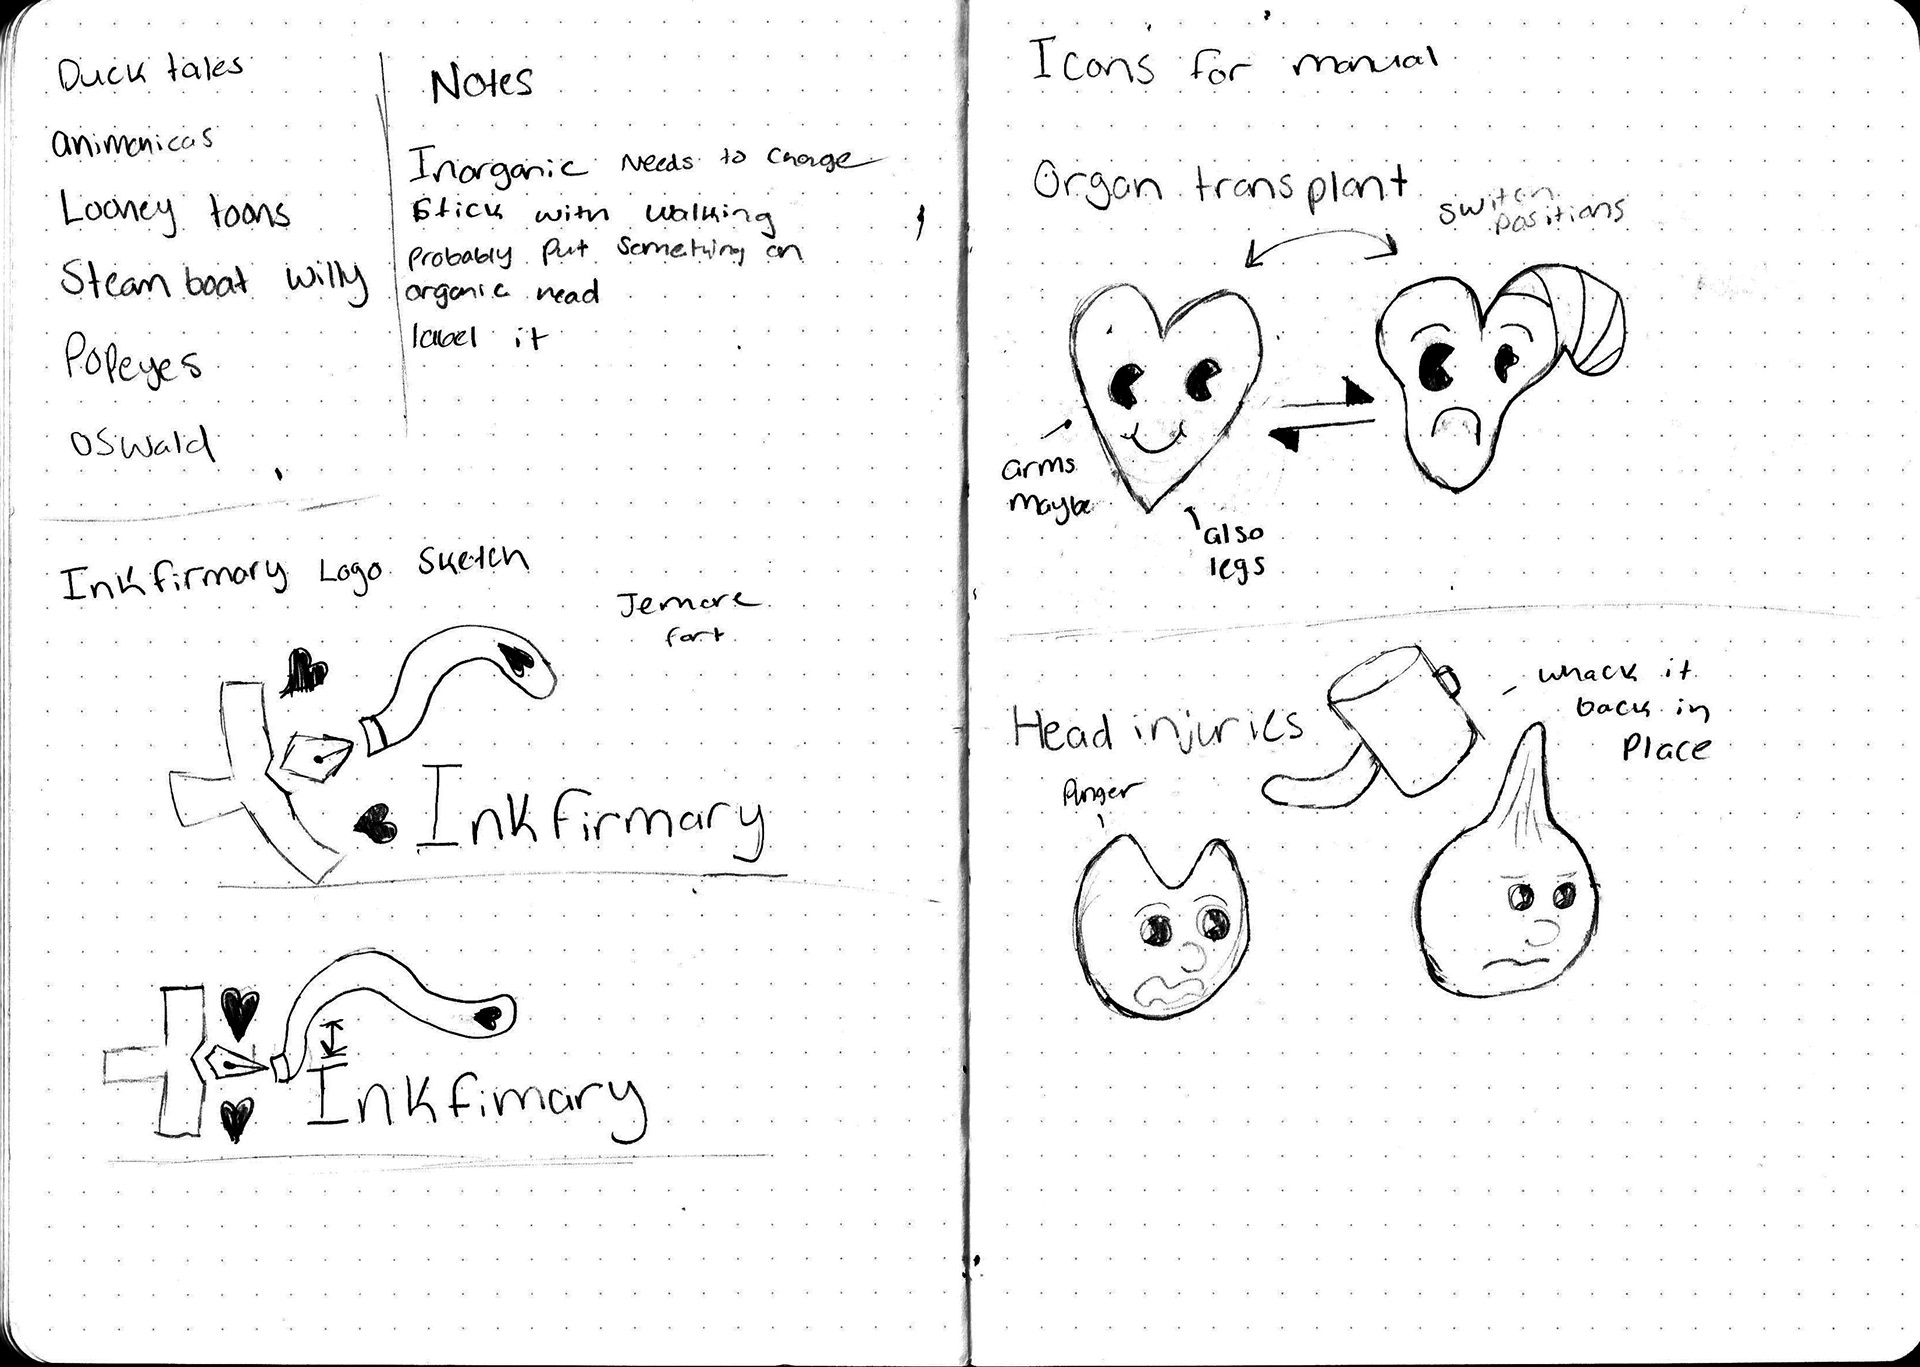 Duck tales
animanicas
Looney toons
Steam boat willy
Popeyes
Oswald
Notes
Inorganic needs to change
Stick with walking
probably put something on
organic head
label it
Inkfirmary Logo Sketch
fort
Inkfirmary
Inkfimary
Icons for manual
Organ transplant
switch
positions
arms
maybe
also
legs
Head injuries
whack it
back in
place